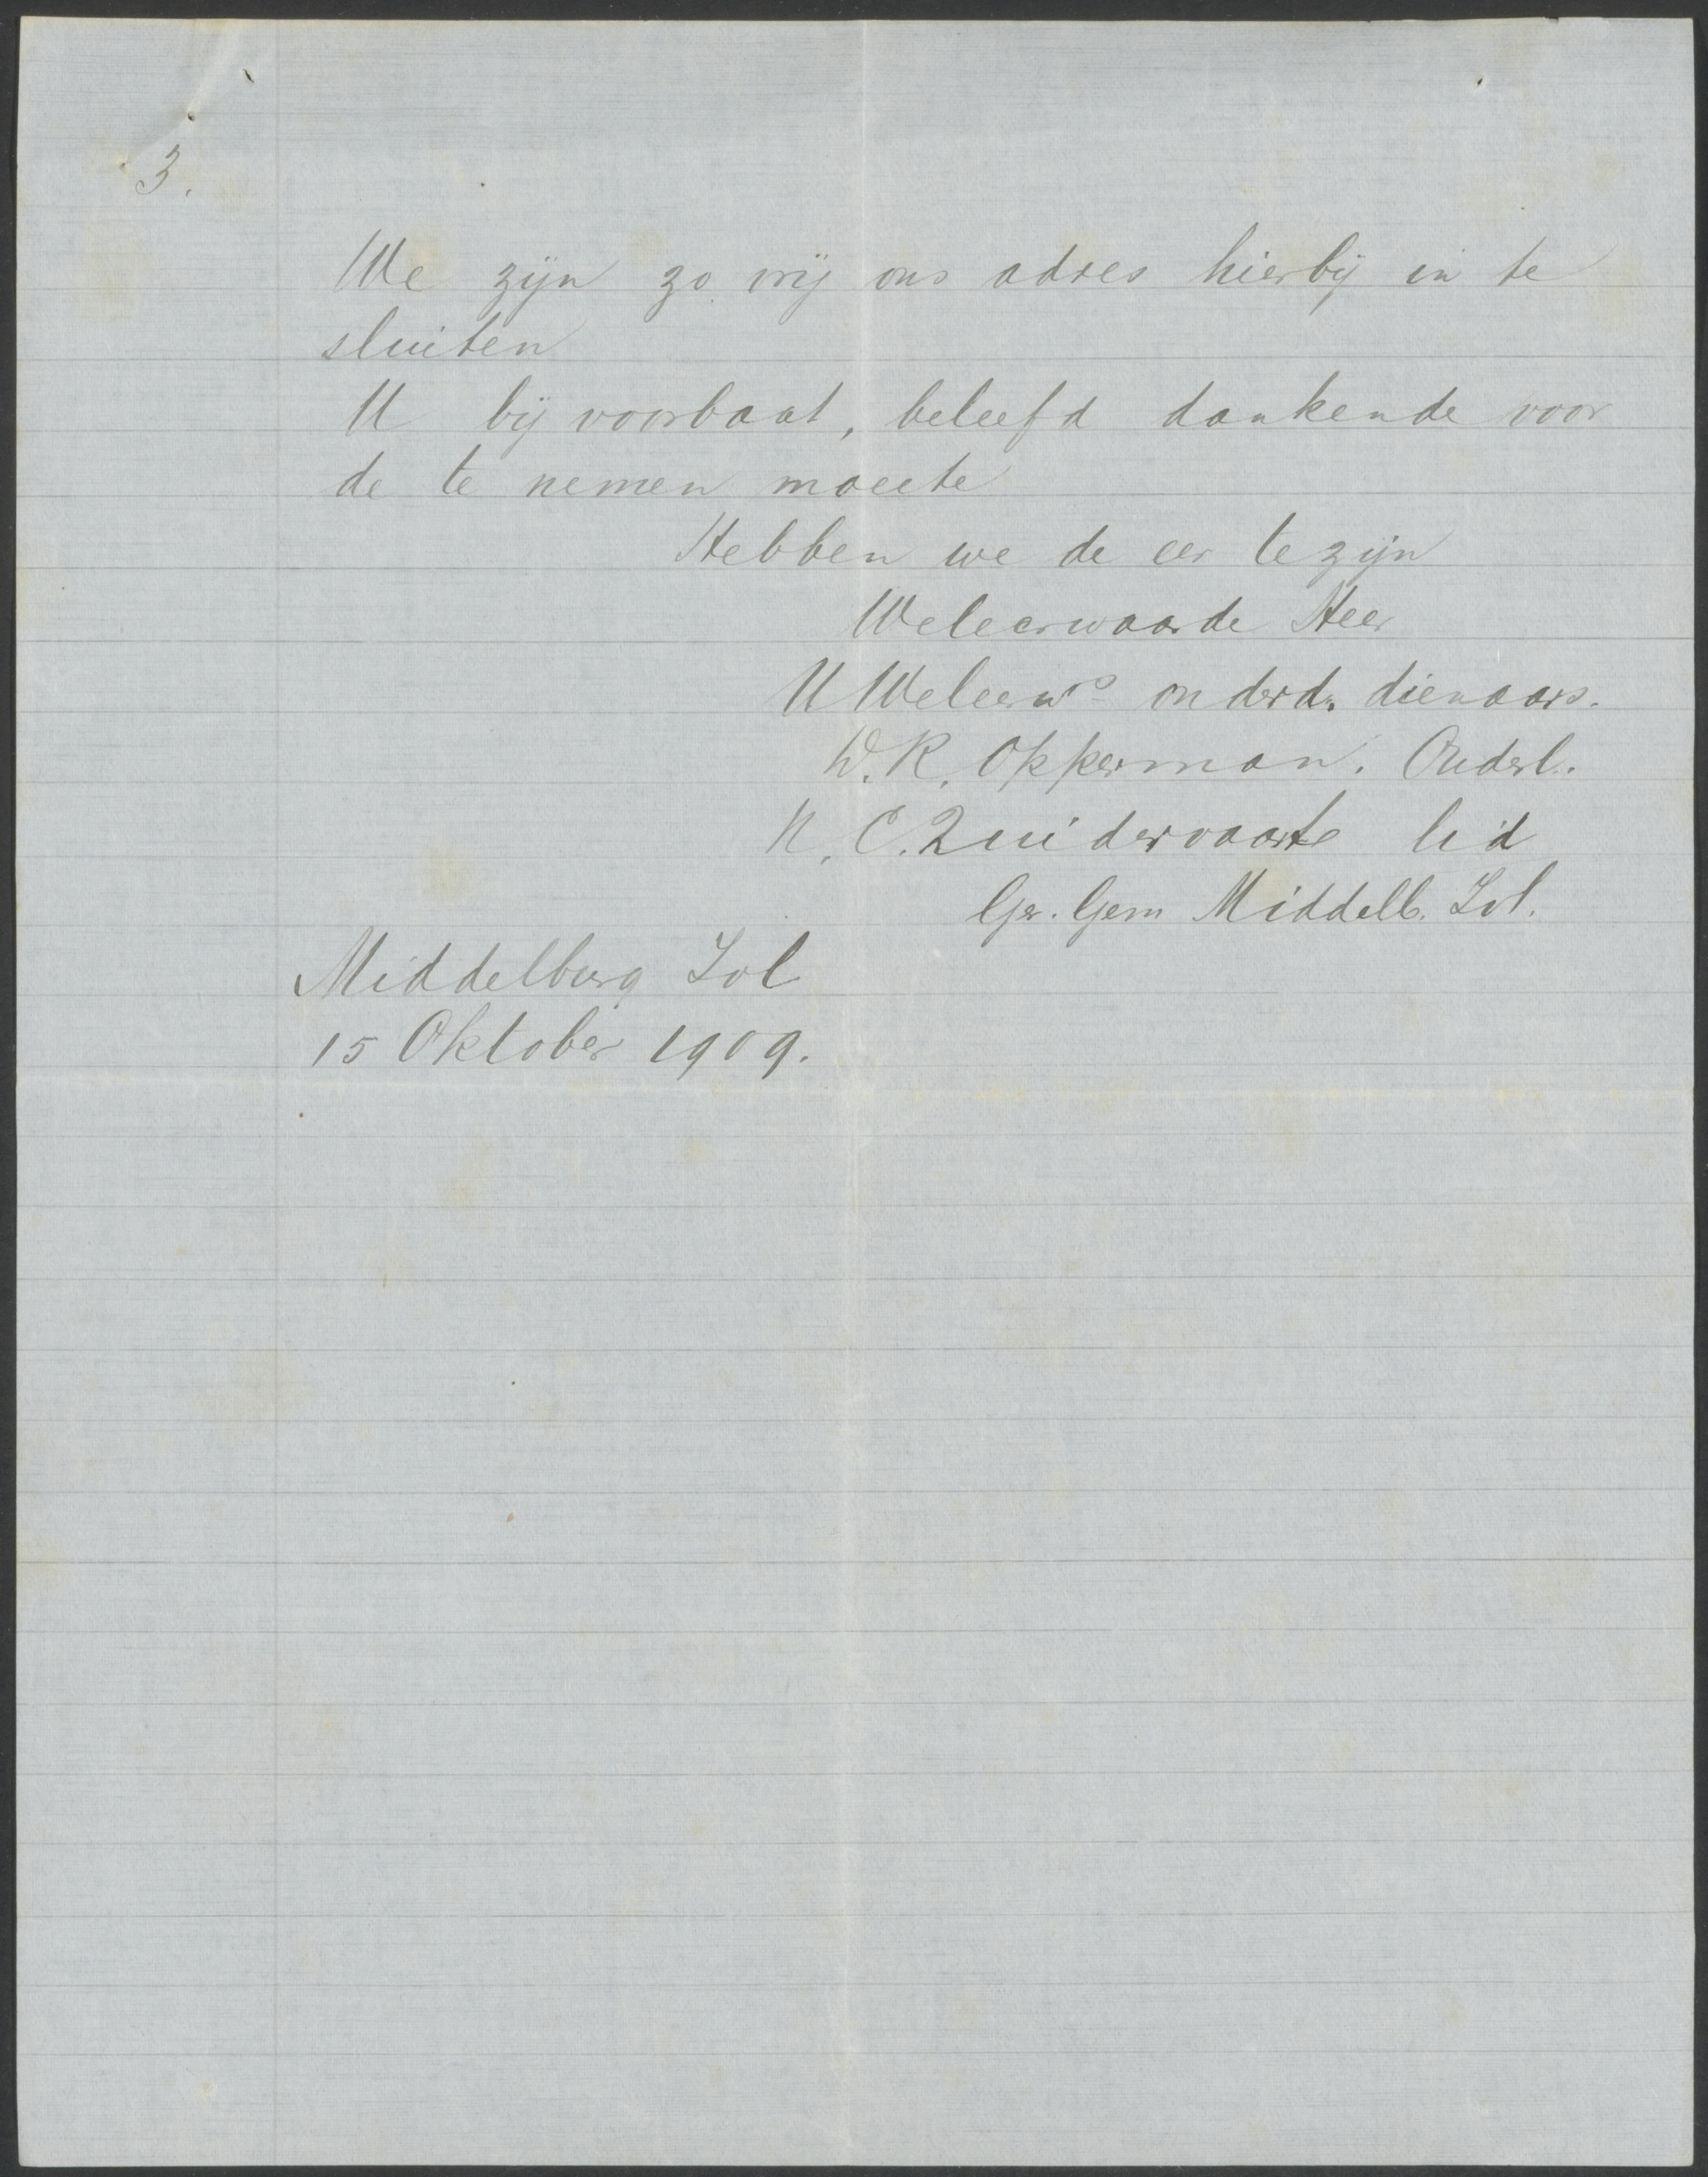 3.
We zijn zo vrij ons adres hierbij in te
sluiten
U bij voorbaat, beleefd dankende voor
de te nemen moeite
Hebben we de eer te zijn
Weleerwaarde Heer
U Weleerws onderd. dienaars.
D. R. Opperman. Ouderl.
N. C. Zuidervaart lid
Ger. Gem Middelb. Tvl.
Middelburg Tvl
15 Oktober 1909.